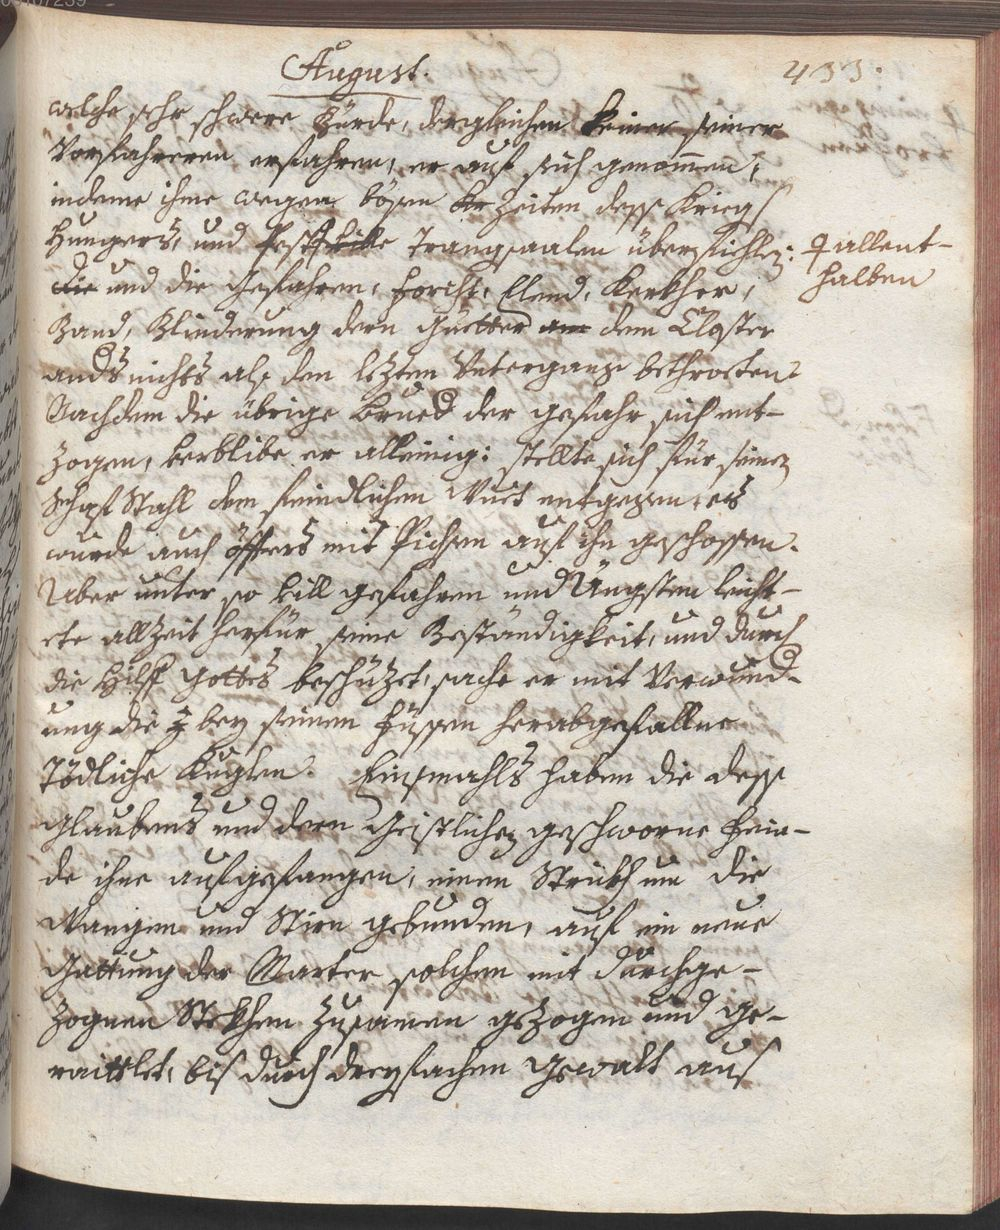 August.
433.
welche sehr schwere Bürde, dergleichen keiner seiner
Vorfahreren erfahren, er auf sich genommen,
indeme ihme wegen bösen Zeiten dess Kriegs
Hungers, und Pest Trangsaalen überfiehlen:
allent-
halben
und die Gefahren, Forcht, Elend, Kerkher,
Band, Blinderung dern Güetter dem Closter
anders nichts als den lezten Untergang bethroeten
Nachdem die übrige Brüed der gefahr sich ent-
zogen, verblibe er alleinig: stellte sich für seinen
Schaf Stahl dem feindlichen Wuet entgegen, es
wurde auch öffters mit Pichsen auf ihn geschossen.
Aber unter so vill gefahren und Ängsten leicht-
ete allzeit herfür seine Beständigkeit, und durch
die Hilff Gottes beschüzet, sache er mit Verwund-
ung die bey seinen Füssen herabgefallne
Tödliche Kuglen. Einsmahls haben die dess
Glaubens und dern Geistlichen geschworne Fein-
de ihne aufgefangen, einen Strickh um die
Wangen und Stirn gebunden, auf ein neue
Gattung der Marter solchen mit durchge-
zognen Stekhen zusamen gezogen und ge-
raittlet, bis durch dreyfachen Gewalt aus